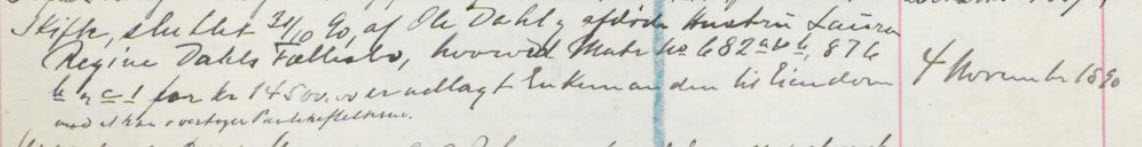 Skifte, sluttet 31/10 90, af Ole Dahl & afdøde Hustru Laura
Regine Dahls Fællesbo, hvorved Matr No 682 a & b, 876
b & c 1 for kr 14500.00 er udlagt Enkemanden til Eiendom
mod at han overtager Pantheftelserne.
4 November 1890